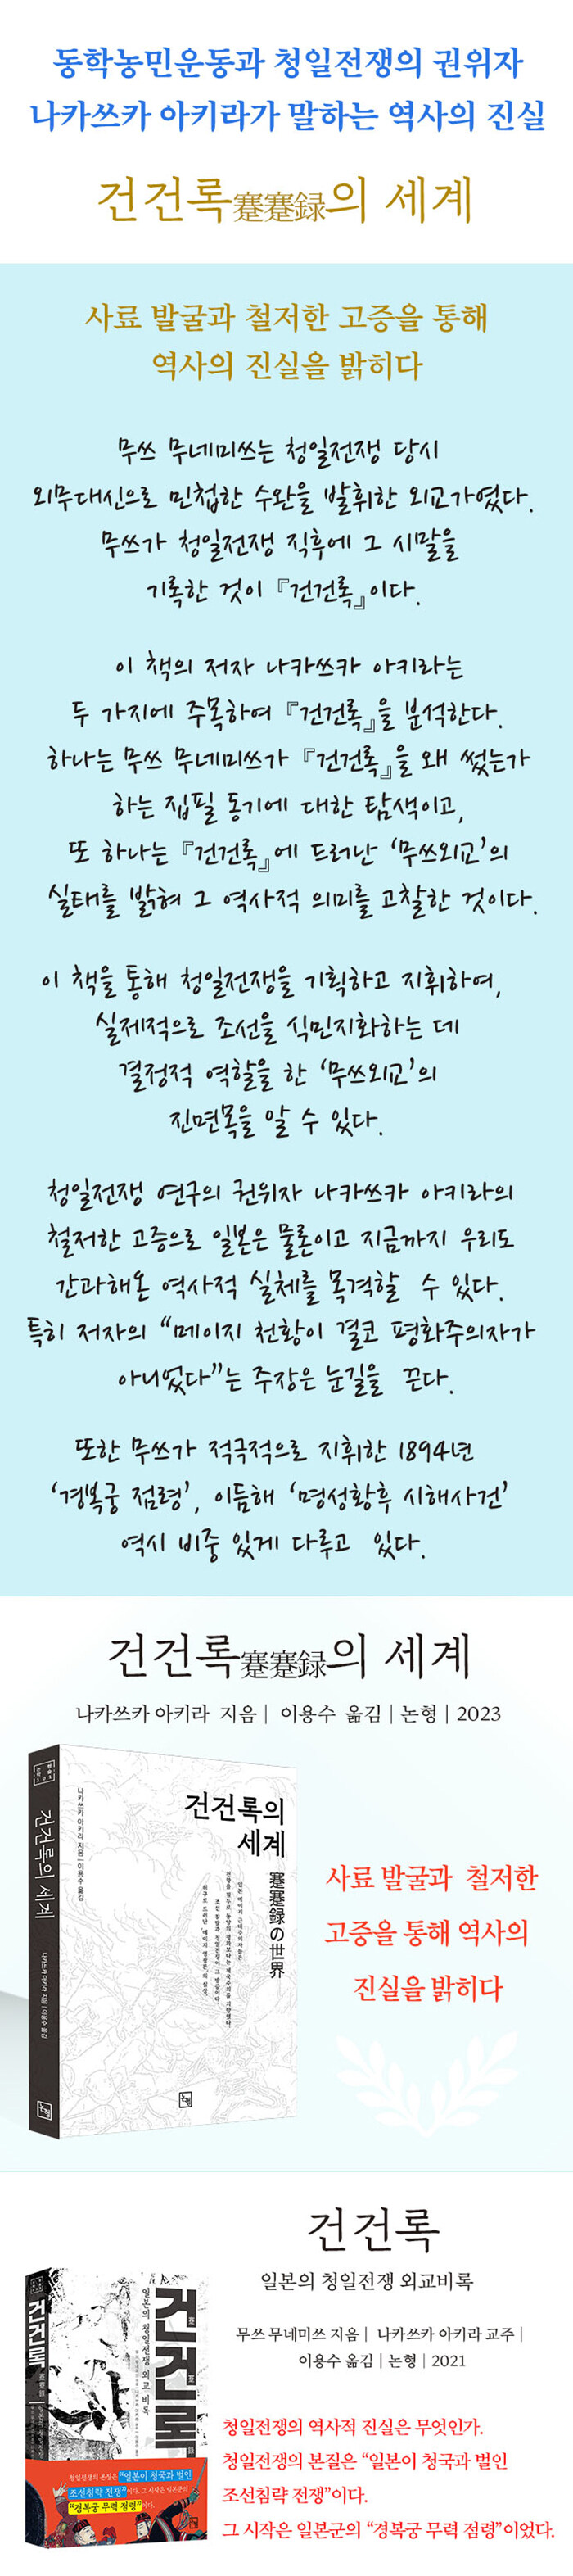 동학농민운동과 청일전쟁의 권위자
나카쓰카 아키라가 말하는 역사의 진실
건건록蹇蹇録의 세계
사료 발굴과 철저한 고증을 통해
역사의 진실을 밝히다
무쓰 무네미쓰는 청일전쟁 당시
외무대신으로 민첩한 수완을 발휘한 외교가였다.
무쓰가 청일전쟁 직후에 그 시말을
기록한 것이 『건건록』이다.
이 책의 저자 나카쓰카 아키라는
두 가지에 주목하여 『건건록』을 분석한다.
하나는 무쓰 무네미쓰가 『건건록』을 왜 썼는가
하는 집필 동기에 대한 탐색이고,
또 하나는 『건건록』에 드러난 ‘무쓰외교’의
실태를 밝혀 그 역사적 의미를 고찰한 것이다.
이 책을 통해 청일전쟁을 기획하고 지휘하여,
실제적으로 조선을 식민지화하는 데
결정적 역할을 한 ‘무쓰외교’의
진면목을 알 수 있다.
청일전쟁 연구의 권위자 나카쓰카 아키라의
철저한 고증으로 일본은 물론이고 지금까지 우리도
간과해온 역사적 실체를 목격할 수 있다.
특히 저자의 “메이지 천황이 결코 평화주의자가
아니었다”는 주장은 눈길을 끈다.
또한 무쓰가 적극적으로 지휘한 1894년
‘경복궁 점령’, 이듬해 ‘명성황후 시해사건’
역시 비중 있게 다루고 있다.
건건록蹇蹇録의 세계
나카쓰카 아키라 지음 | 이용수 옮김 | 논형 | 2023
건건록의 세계
나카쓰카 아키라 지음 | 이용수 옮김
논형
나카쓰카 아키라 지음 | 이용수 옮김
건건록의
세계
蹇蹇録の世界
논형
사료 발굴과 철저한
고증을 통해 역사의
진실을 밝히다
건건록
일본의 청일전쟁 외교비록
무쓰 무네미쓰 지음 | 나카쓰카 아키라 교주 |
이용수 옮김 | 논형 | 2021
건건록
건건록
일본의 청일전쟁 외교 비록
청일전쟁의 본질은 “일본이 청국과 벌인
조선침략 전쟁”이다. 그 시작은 일본군의
“경복궁 무력 점령”이다.
청일전쟁의 역사적 진실은 무엇인가.
청일전쟁의 본질은 “일본이 청국과 벌인
조선침략 전쟁”이다.
그 시작은 일본군의 “경복궁 무력 점령”이었다.